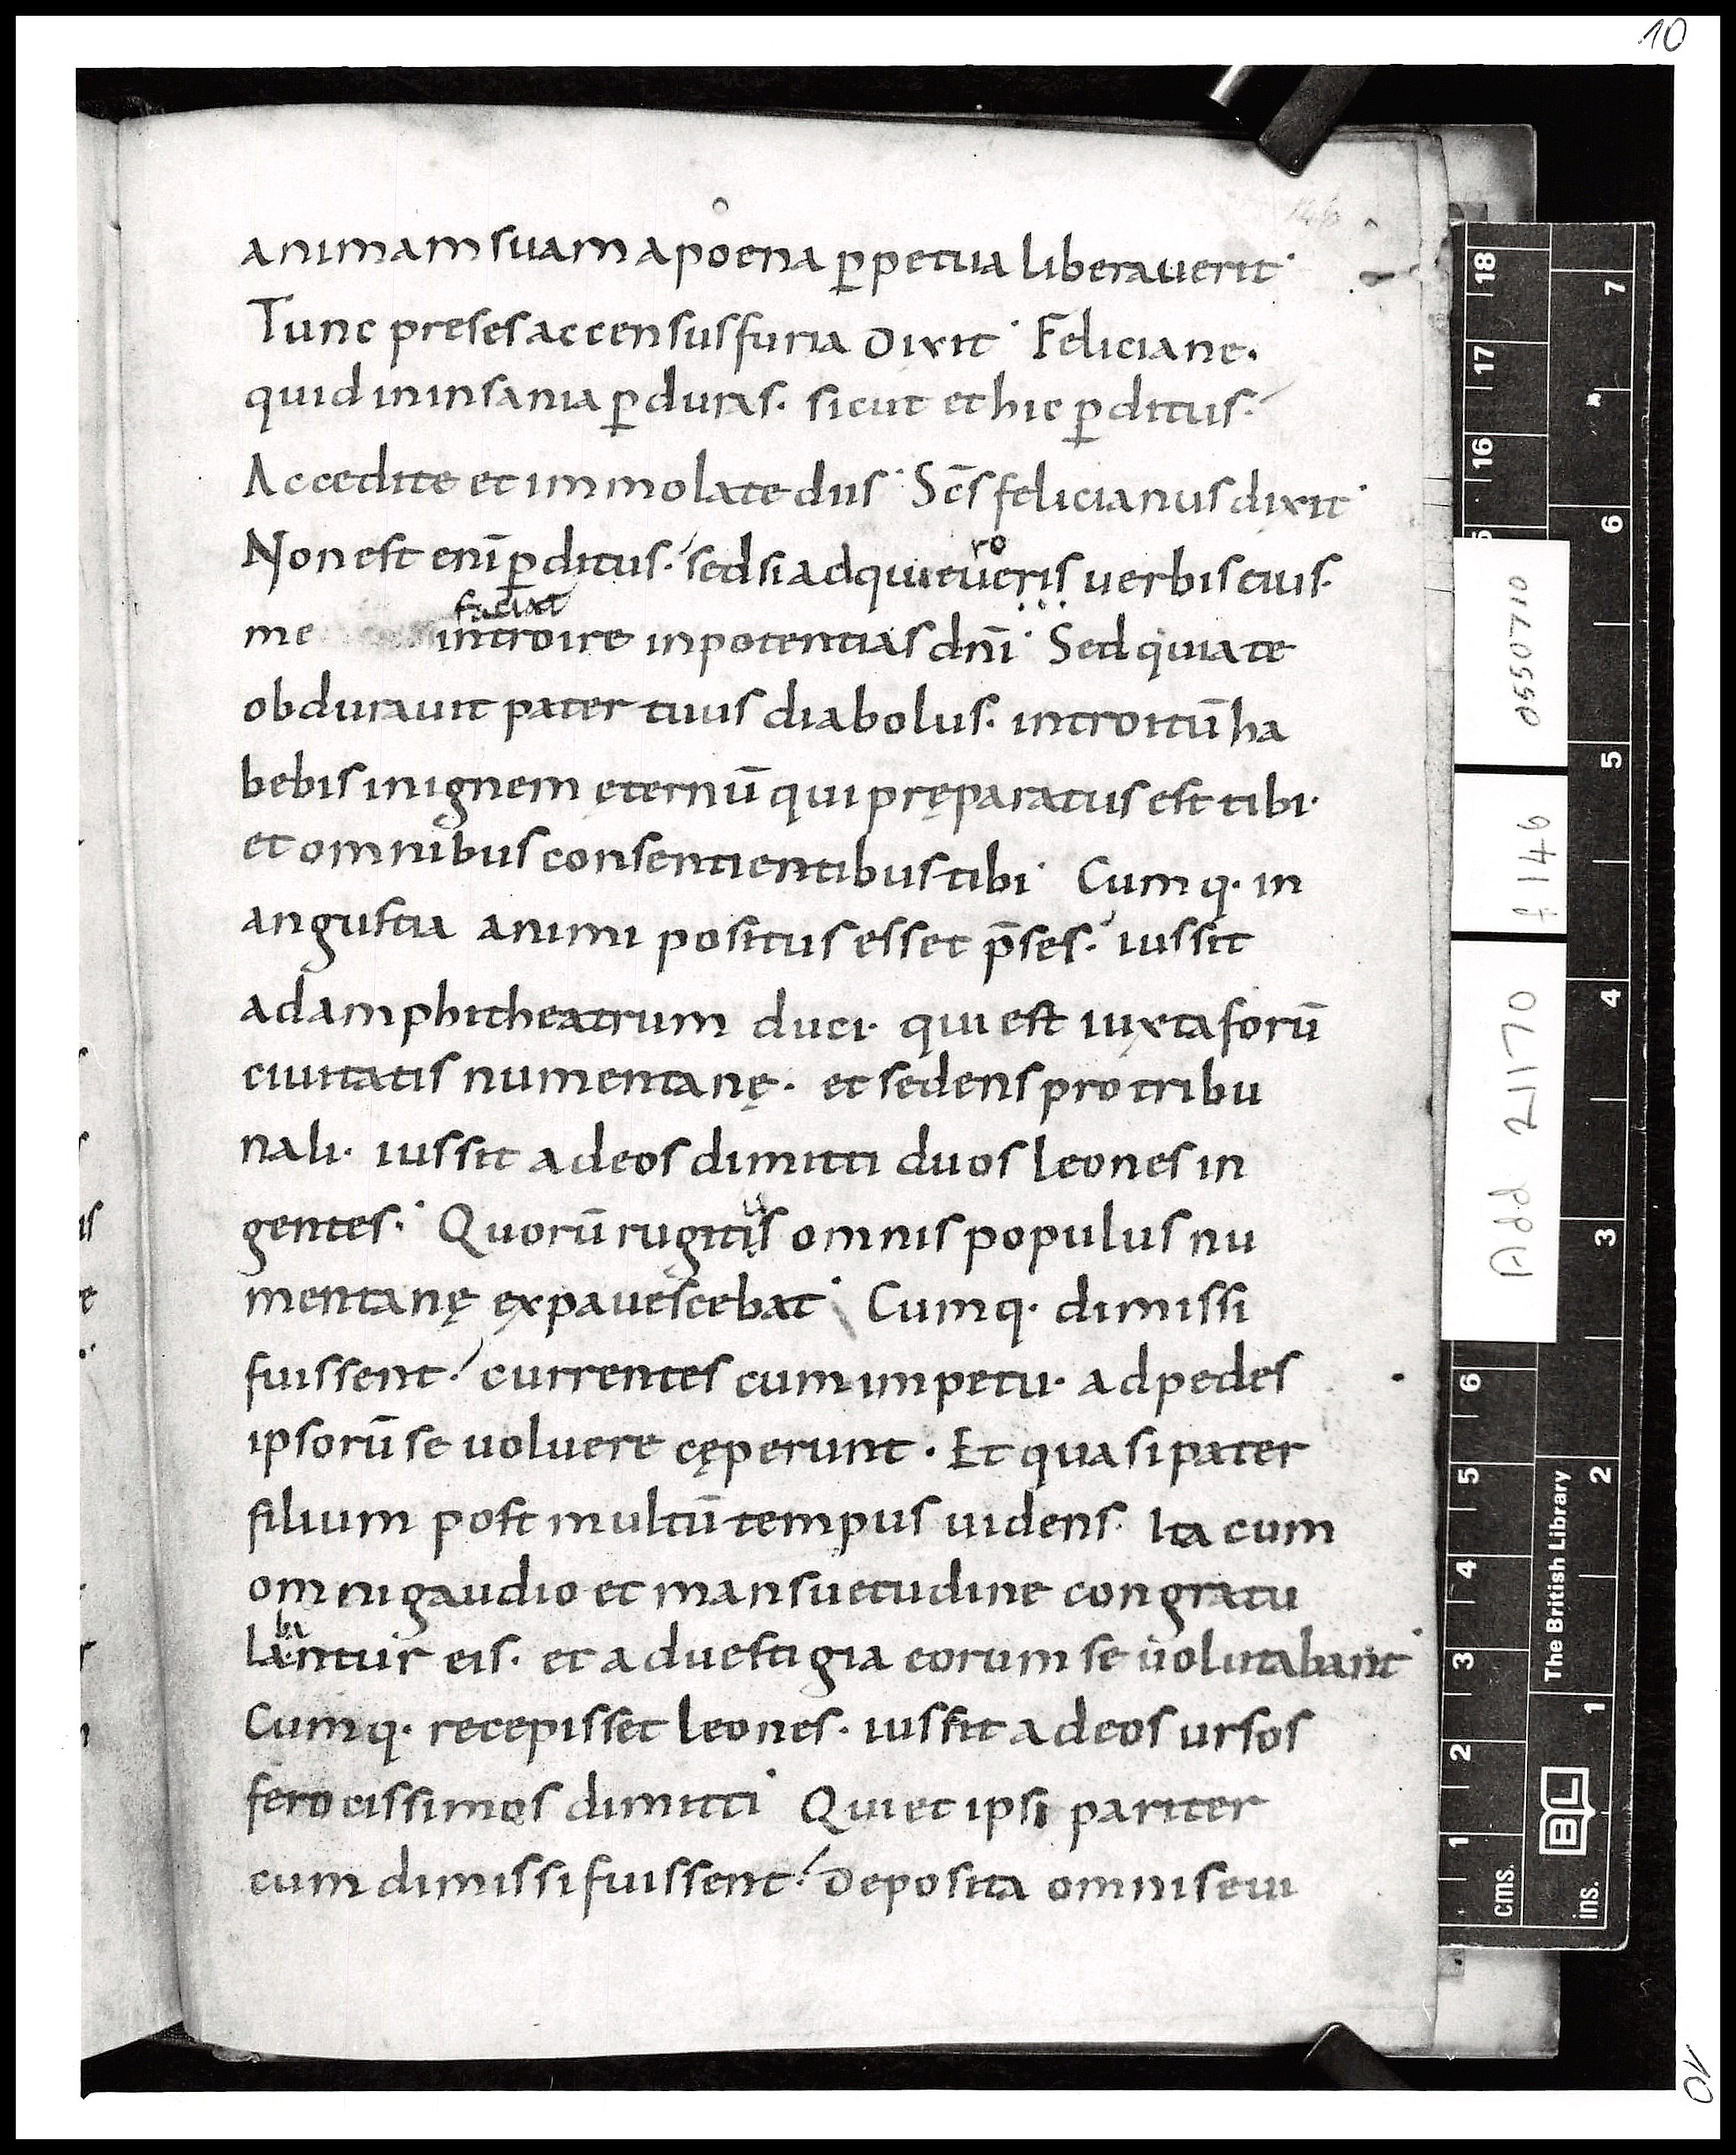 10
146
animam suam a poena p̱petua liberauerit·
Tunc preses accensus furia dixit· Feliciane.
quid in insania p̱duras. sicut et hic p̱ditus.
Accedite et immolate diis· Sc̄s felicianus dixit·
Non est enī p̱ditus. sed si adquieueris uerbis eius.
ro
faciat
me introire in potentias dn̄i· Sed quia te
obdurauit pater tuus diabolus. introitū ha
bebis in ignem ęternū qui pręparatus est tibi·
et omnibus consentientibus tibi· Cumq. in
angustia animi positus esset p̄ses. iussit
ad amphitheatrum duci. qui est iuxta forū
ciuitatis numentanę. et sedens pro tribu
nali. iussit ad eos dimitti duos leones in
gentes. Quorū rugitis omnis populus nu
u
mentanę expauescebat· Cumq. dimissi
fuissent. currentes cum impetu. ad pedes
ipsorū se uoluere cęperunt. Et quasi pater
filium post multū tempus uidens. Ita cum
omni gaudio et mansuetudine congratu
ba
lantur eis. et ad uestigia eorum se uolutabant·
Cumq. recepisset leones. iussit ad eos ursos
ferocissimos dimitti· Qui et ipsi pariter
cum dimissi fuissent. deposita omni seui
0550710
f 146
Add 21170
The British Library
BL
cms.
ins.
18
17
16
6
5
4
3
2
1
7
6
5
4
3
2
1
10